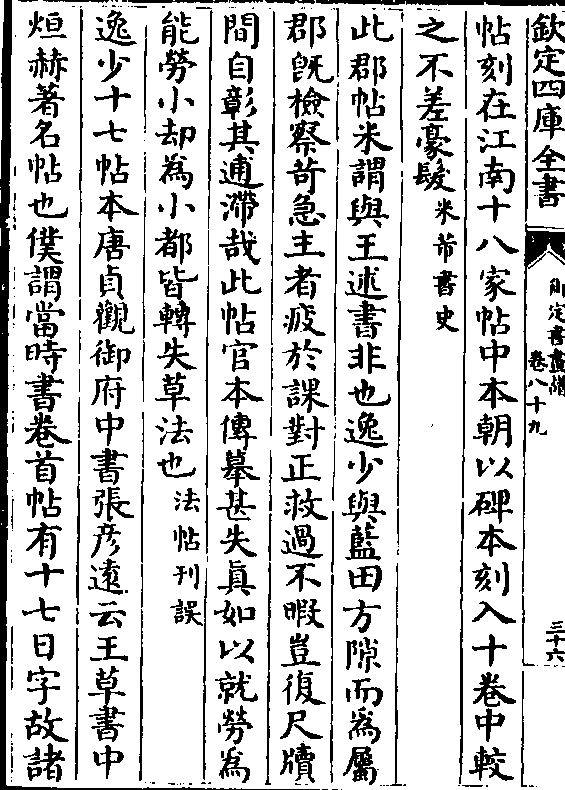 欽定四庫全書
御定書畫譜
卷八十九
三十六
帖刻在江南十八家帖中本朝以碑本刻入十卷中較
之不差豪髮米芾書史
此郡帖米謂與王述書非也逸少與藍田方隙而為屬
郡旣檢察苛急主者疲於課對正救過不暇豈復尺牘
間自彰其逋滯哉此帖官本傳摹甚失真如以就勞為
能勞小却為小都皆轉失草法也法帖刊誤
逸少十七帖本唐貞觀御府中書張彦遠云王草書中
烜赫著名帖也僕謂當時書卷首帖有十七日字故諸